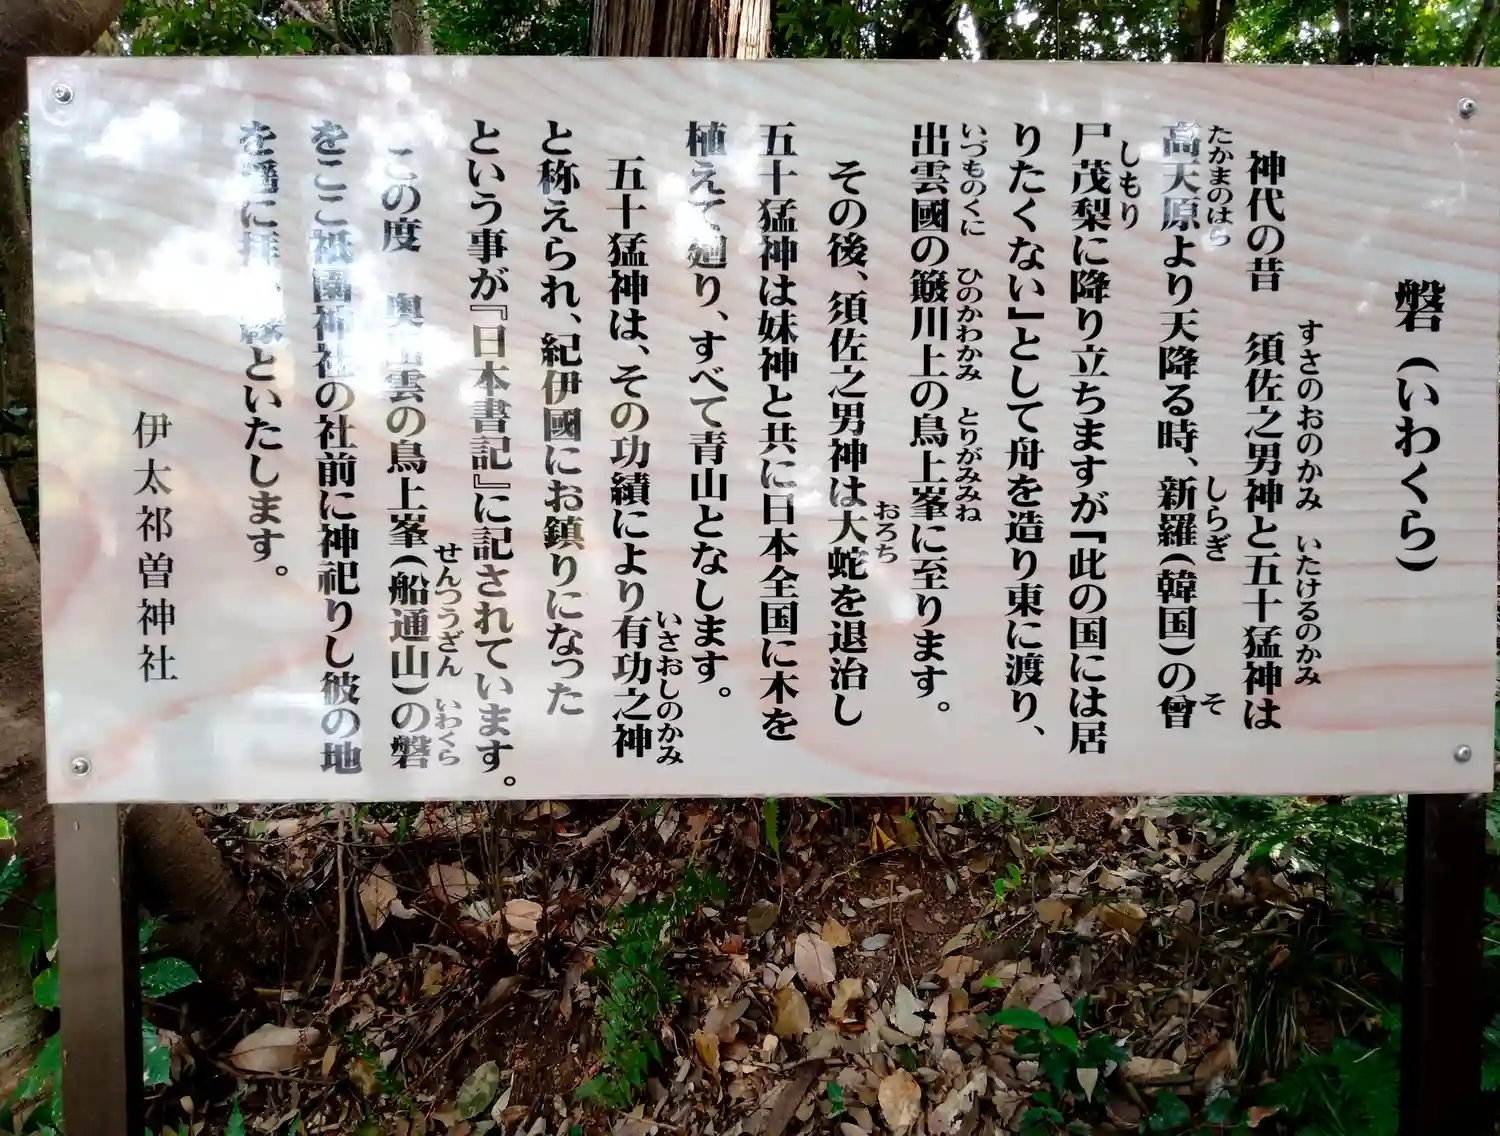 磐（いわくら）
神代の昔　須佐之男神と五十猛神は
すさのおのかみ　いたけるのかみ
高天原より天降る時、新羅（韓国）の曾
たかまのはら　しらぎ　そ
尸茂梨に降り立ちますが「此の国には居
しもり
りたくない」として舟を造り東に渡り、
出雲國の簸川上の鳥上峯に至ります。
いづものくに　ひのかわかみ　とりがみみね
その後、須佐之男神は大蛇を退治し
おろち
五十猛神は妹神と共に日本全国に木を
植えて廻り、すべて青山となします。
五十猛神は、その功績により有功之神
いさおしのかみ
と称えられ、紀伊國にお鎮りになった
という事が『日本書記』に記されています。
この度　奥出雲の鳥上峯（船通山）の磐
せんつうざん　いわくら
をここ祇園神社の社前に神祀りし彼の地
を遥に拝　縁といたします。
伊太祁曽神社